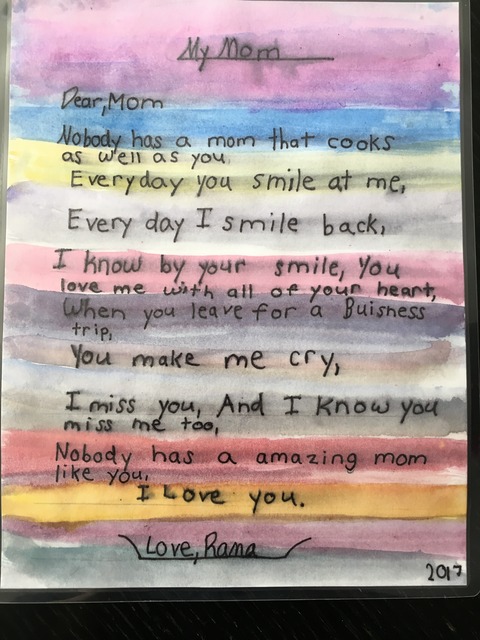 My Mom
Dear, Mom
Nobody has a mom that cooks
as well as you.
Everyday you smile at me,
Every day I smile back,
I know by your smile, You
love me with all of your heart,
When you leave for a Buisness
trip,
You make me cry,
I miss you, And I Know you
miss me too,
Nobody has a amazing mom
like you,
I Love you.
Love, Rana
2017